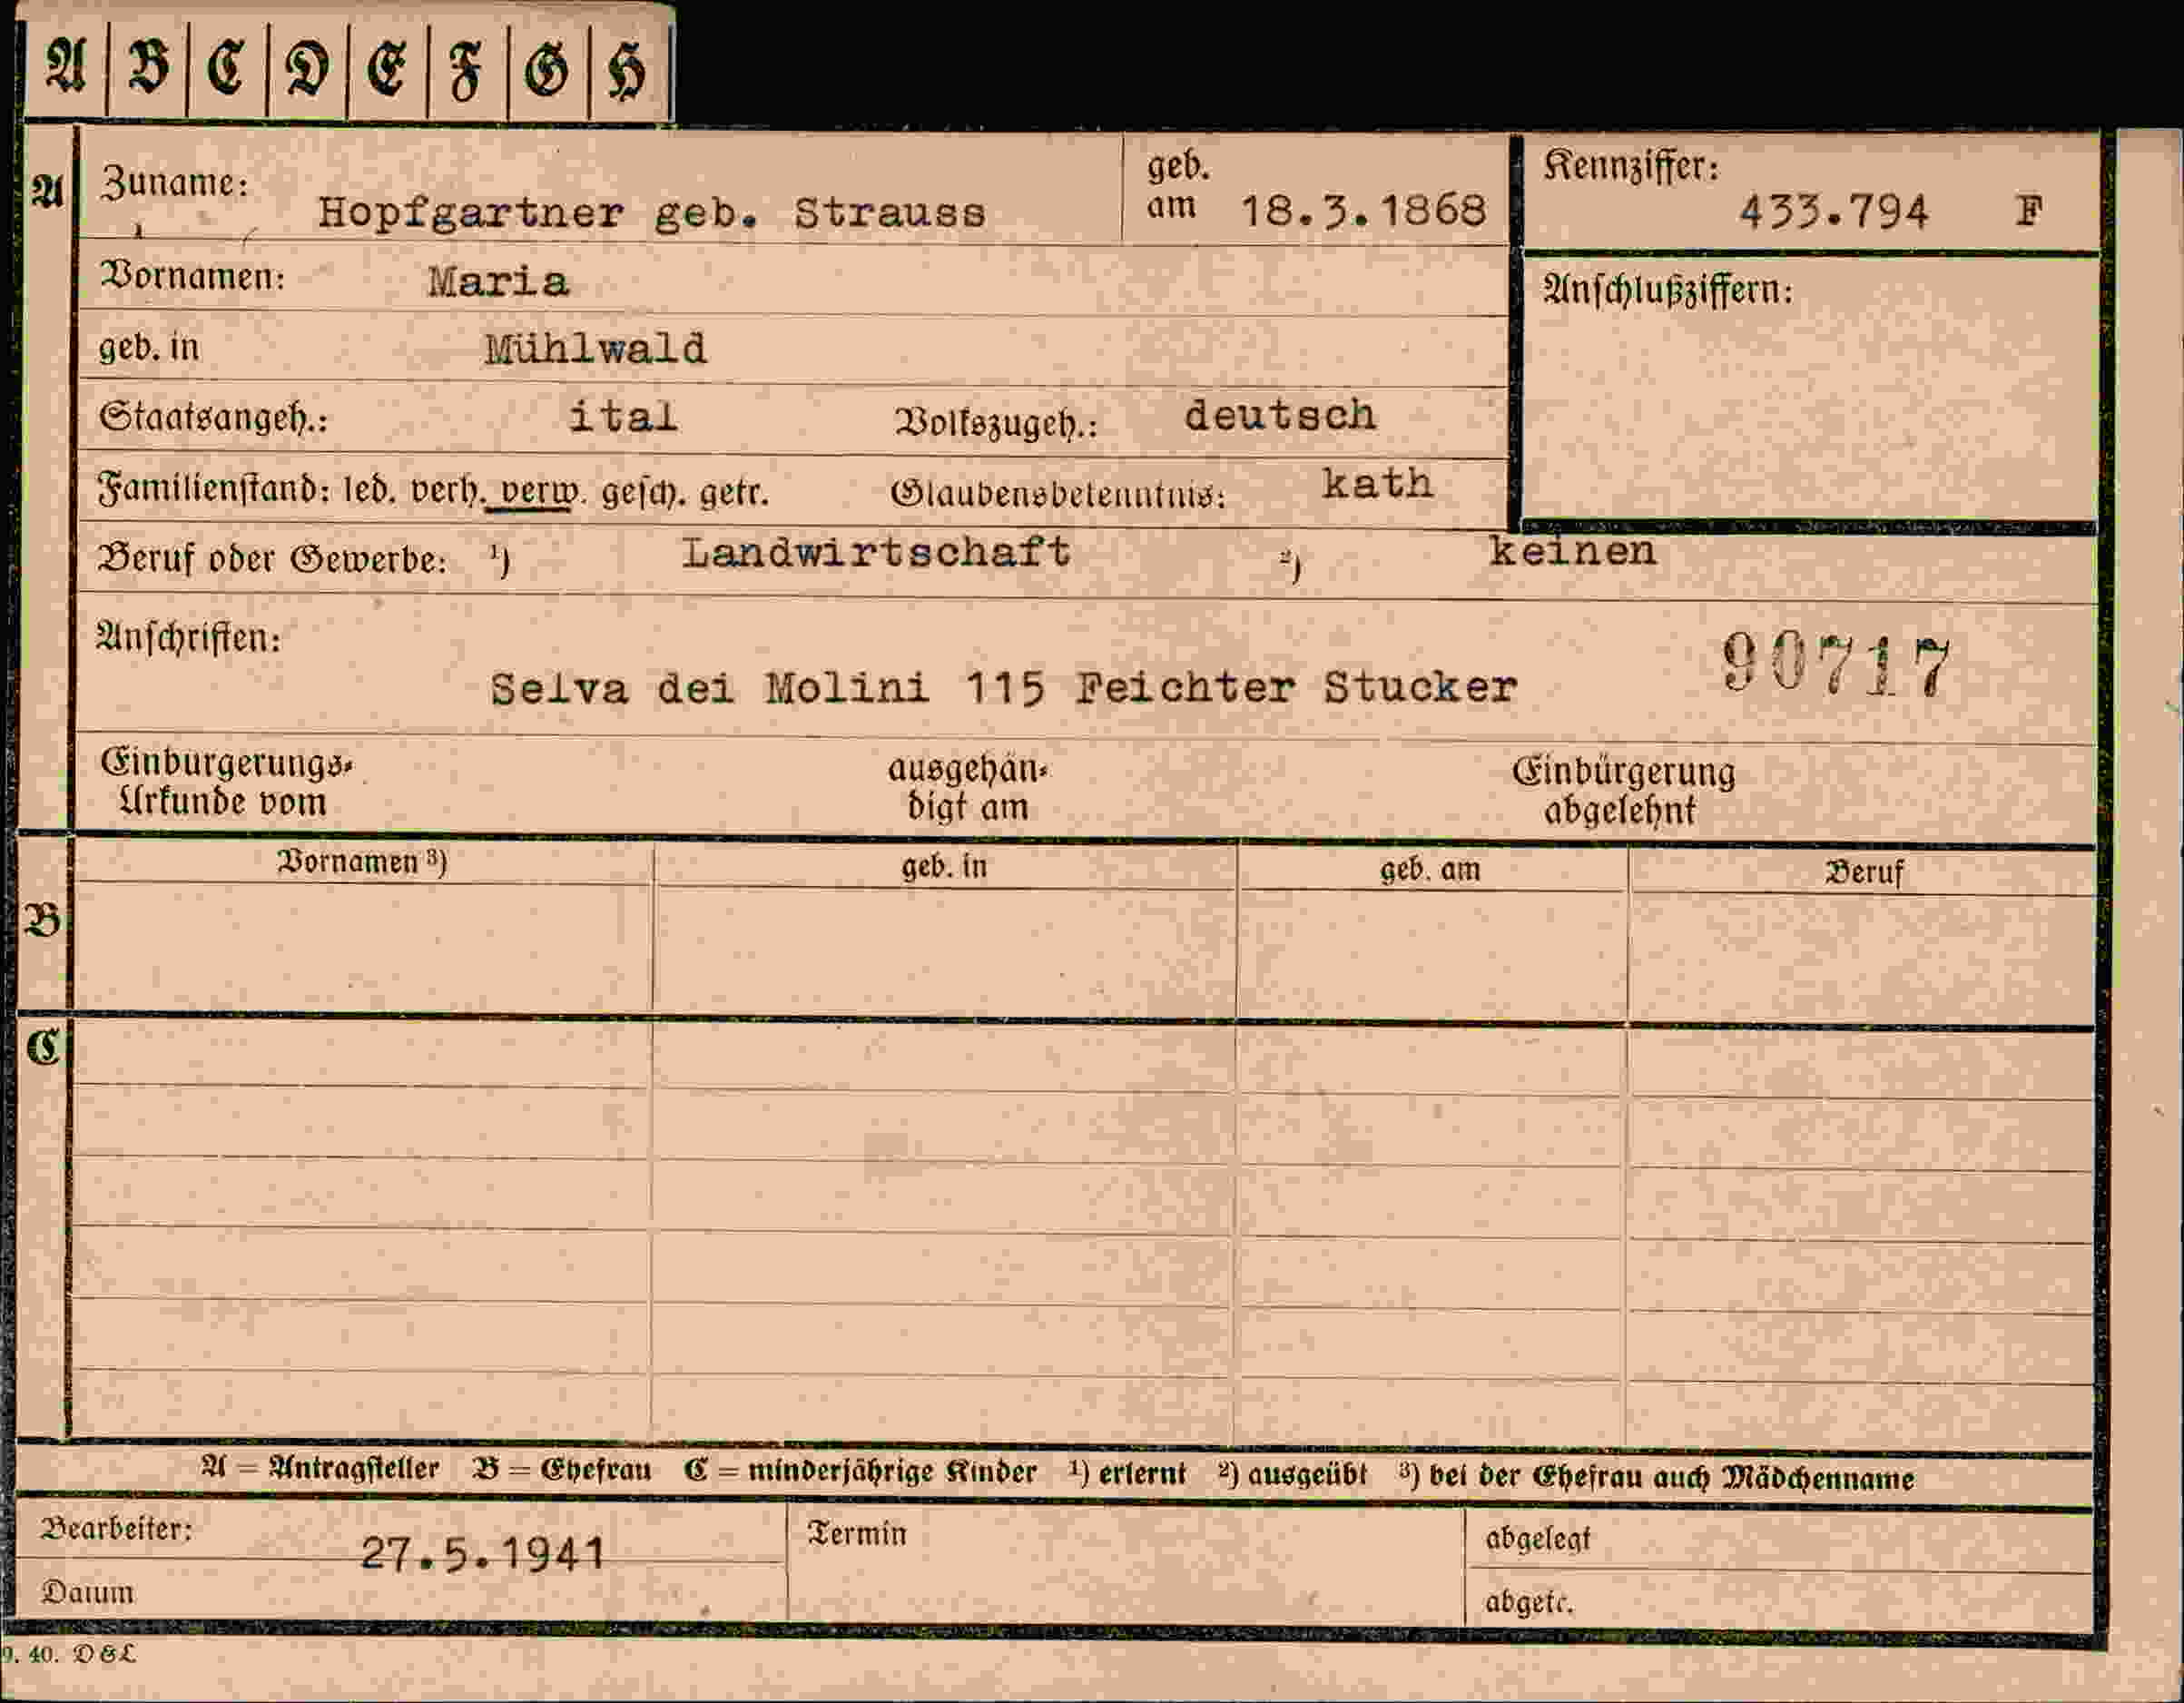 A B C D E F G H
A Zuname: Hopfgartner geb. Strauss geb. am 18.3.1868 Kennziffer: 433.794 F
Vornamen: Maria Anschlußziffern:
geb. in Mühlwald
Staatsangeh.: ital Volkszugeh.: deutsch
Familienstand: led. verh. verw. gesch. getr. Glaubensbekenntnis: kath
Beruf oder Gewerbe: ¹) Landwirtschaft ²) keinen
Anschriften:
Selva dei Molini 115 Feichter Stucker 90717
Einbürgerungs- ausgehän- Einbürgerung
Urkunde vom digt am abgelehnt
Vornamen ³) geb. in geb. am Beruf
B
C
A = Antragsteller B = Ehefrau C = minderjährige Kinder ¹) erlernt ²) ausgeübt ³) bei der Ehefrau auch Mädchenname
Bearbeiter: 27.5.1941 Termin abgelegt
Datum abgetr.
9. 40. D&L